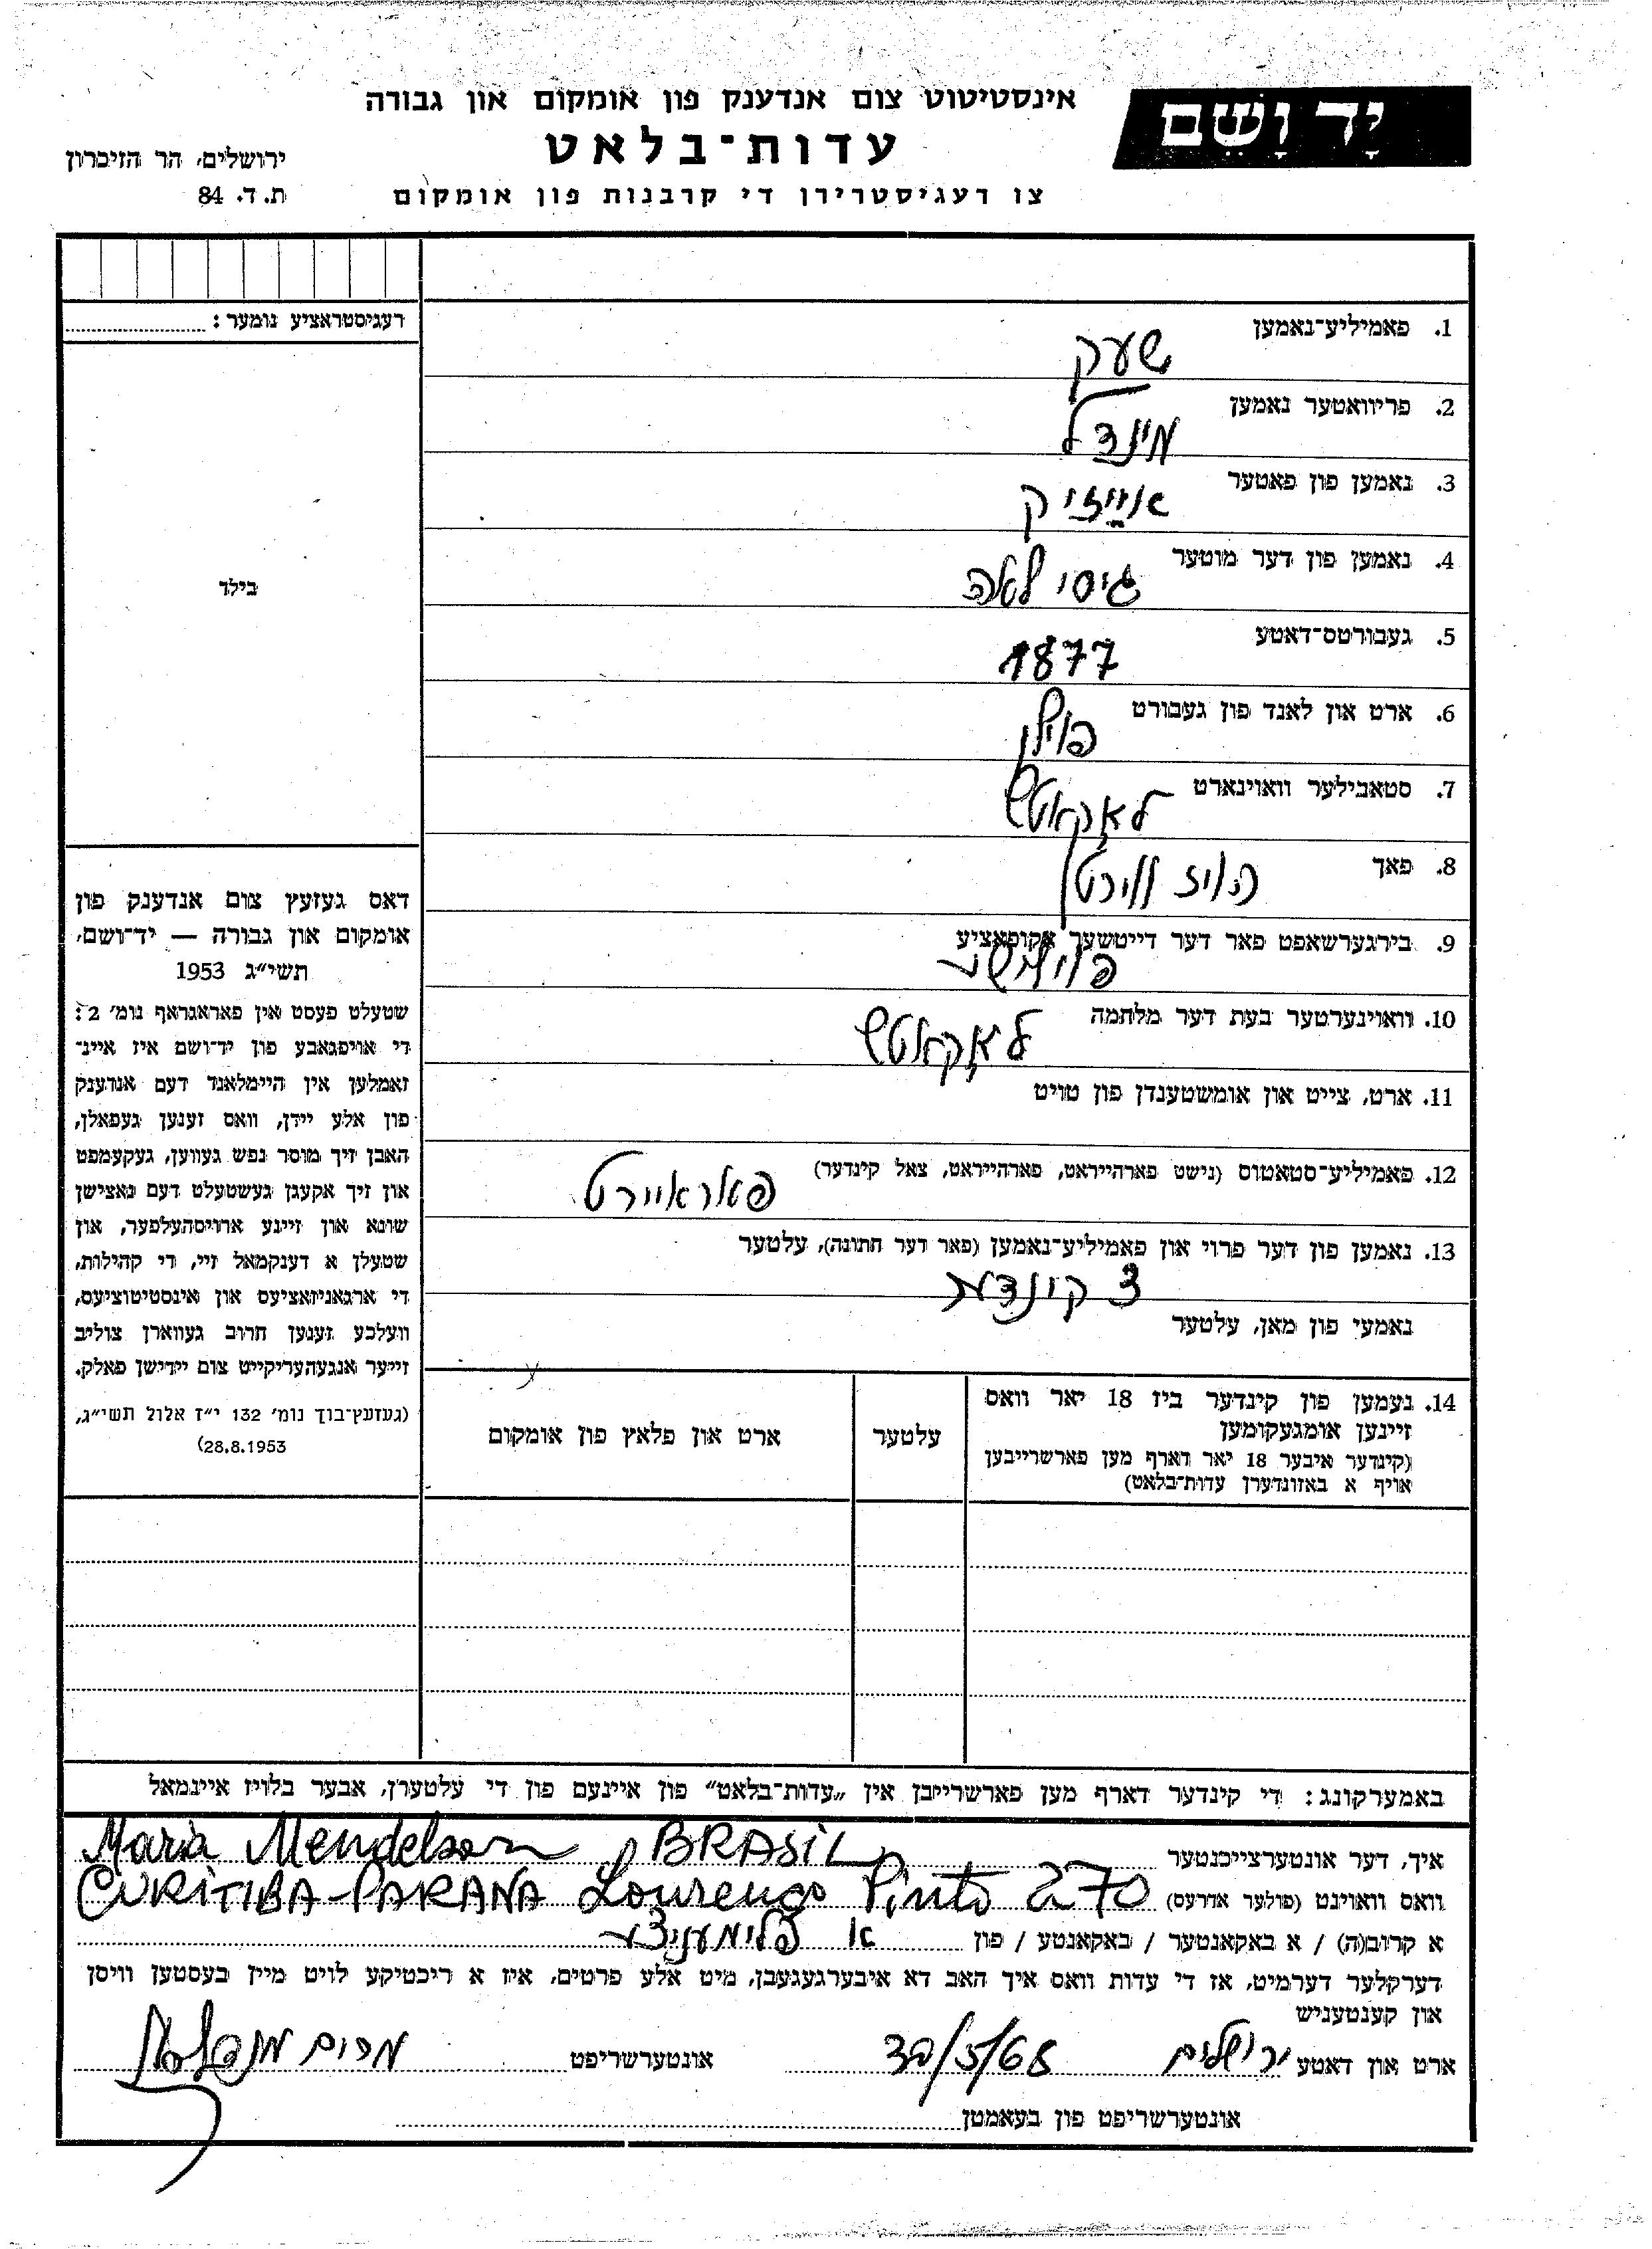 יָד וָשֵׁם
אינסטיטוט צום אנדענק פון אומקום און גבורה
עדות־בלאט
צו רעגיסטרירן די קרבנות פון אומקום
ירושלים, הר הזיכרון
ת. ד. 84
רעגיסטראציע נומער:
בילד
דאס געזעץ צום אנדענק פון
אומקום און גבורה — יד־ושם,
תשי״ג 1953
שטעלט פעסט אין פאראגראף נומ׳ 2:
די אויפגאבע פון יד־ושם איז איינ־
זאמלען אין היימלאנד דעם אנדענק
פון אלע יידן, וואס זענען געפאלן,
האבן זיך מוסר נפש געווען, געקעמפט
און זיך אקעגן געשטעלט דעם נאצישן
שונא און זיינע ארויסהעלפער, און
שטעלן א דענקמאל זיי, די קהילות,
די ארגאניזאציעס און אינסטיטוציעס,
וועלכע זענען חרוב געווארן צוליב
זייער אנגעהעריקייט צום יידישן פאלק.
(געזעץ־בוך נומ׳ 132 י״ז אלול תשי״ג,
28.8.1953)
1. פאמיליע־נאמען
שעק
2. פריוואטער נאמען
מינדל
3. נאמען פון פאטער
אייזיק
4. נאמען פון דער מוטער
גיסי לאה
5. געבורטס־דאטע
1877
6. ארט און לאנד פון געבורט
פוילן
7. סטאבילער וואוינארט
לאקאטש
8. פאך
הויז ווירט
9. בירגערשאפט פאר דער דייטשער אקופאציע
פוילישע
10. וואוינערטער בעת דער מלחמה
לאקאטש
11. ארט, צייט און אומשטענדן פון טויט
12. פאמיליע־סטאטוס (נישט פארהייראט, פארהייראט, צאל קינדער)
13. נאמען פון דער פרוי און פאמיליע־נאמען (פאר דער חתונה), עלטער
3
נאמעי פון מאן, עלטער
14. נעמען פון קינדער ביז 18 יאר וואס
זיינען אומגעקומען
(קינדער איבער 18 יאר דארף מען פארשרייבן
אויף א באזונדערן עדות־בלאט)
עלטער
ארט און פלאץ פון אומקום
באמערקונג: די קינדער דארף מען פארשרייבן אין „עדות־בלאט״ פון איינעם פון די עלטערן, אבער בלויז איינמאל
איך, דער אונטערצייכנטער Maria Mendelson BRASIL
וואס וואוינט (פולער אדרעס) CURITIBA-PARANA Lourenço Pinto 270
א קרוב(ה) / א באקאנטער / באקאנטע / פון א פלימעניצע
דערקלער דערמיט, אז די עדות וואס איך האב דא איבערגעגעבן, מיט אלע פרטים, איז א ריכטיקע לויט מיין בעסטען וויסן
און קענטעניש
ארט און דאטע ירושלים 30/5/68 אונטערשריפט מרים
אונטערשריפט פון בעאמטן